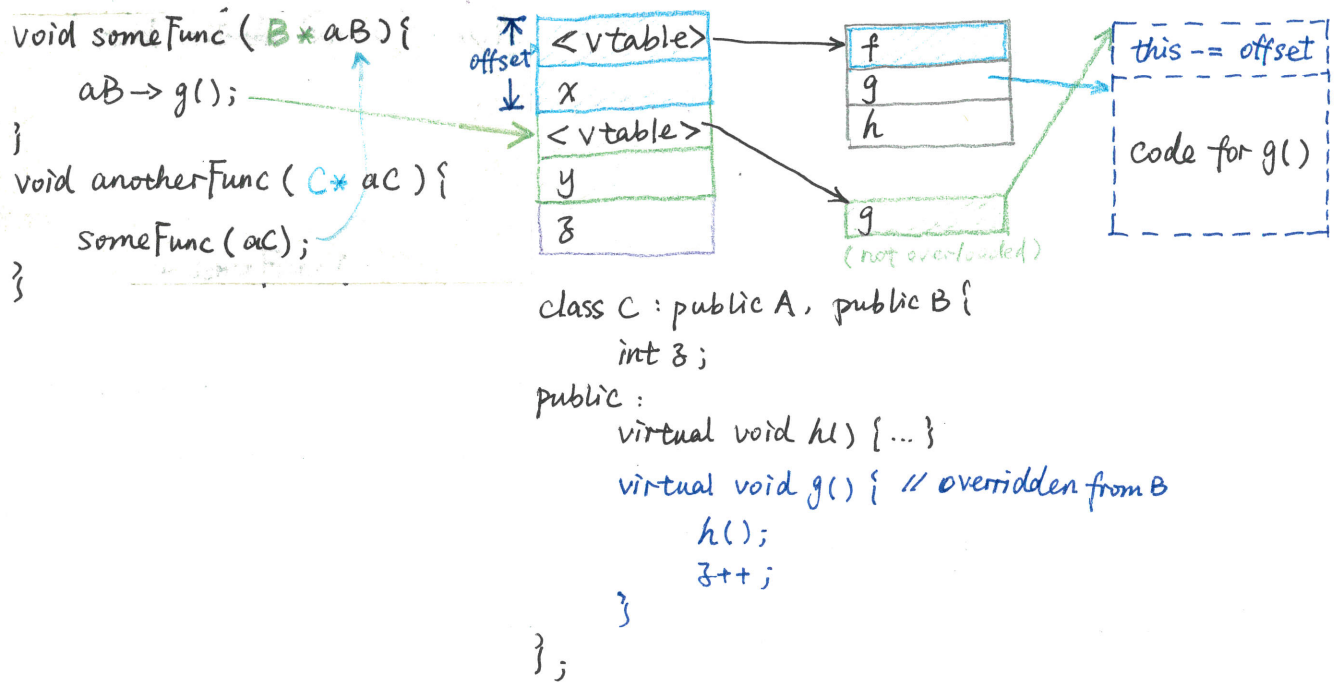 void someFunc ( B* aB){
aB→ g();
}
void anotherFunc ( C* aC ) {
someFunc (aC);
}
offset
<vtable>
x
<vtable>
y
z
f
g
h
g
(not overloaded)
this -= offset
code for g()
class C : public A, public B {
int z ;
public :
virtual void h() {...}
virtual void g() { // overridden from B
h();
z++ ;
}
};